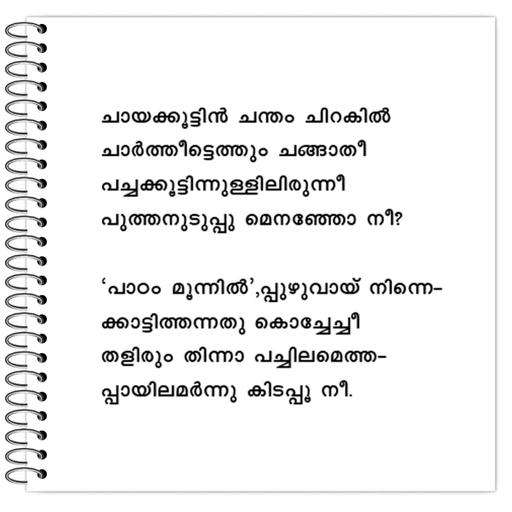 ചായക്കൂട്ടിൻ ചന്തം ചിറകിൽ
ചാർത്തീട്ടെത്തും ചങ്ങാതീ
പച്ചക്കൂട്ടിന്നുള്ളിലിരുന്നീ
പുത്തനുടുപ്പു മെനഞ്ഞോ നീ?
‘പാഠം മൂന്നിൽ’,പ്പുഴുവായ് നിന്നെ-
ക്കാട്ടിത്തന്നതു കൊച്ചേച്ചീ
തളിരും തിന്നാ പച്ചിലമെത്ത-
പ്പായിലമർന്നു കിടപ്പൂ നീ.